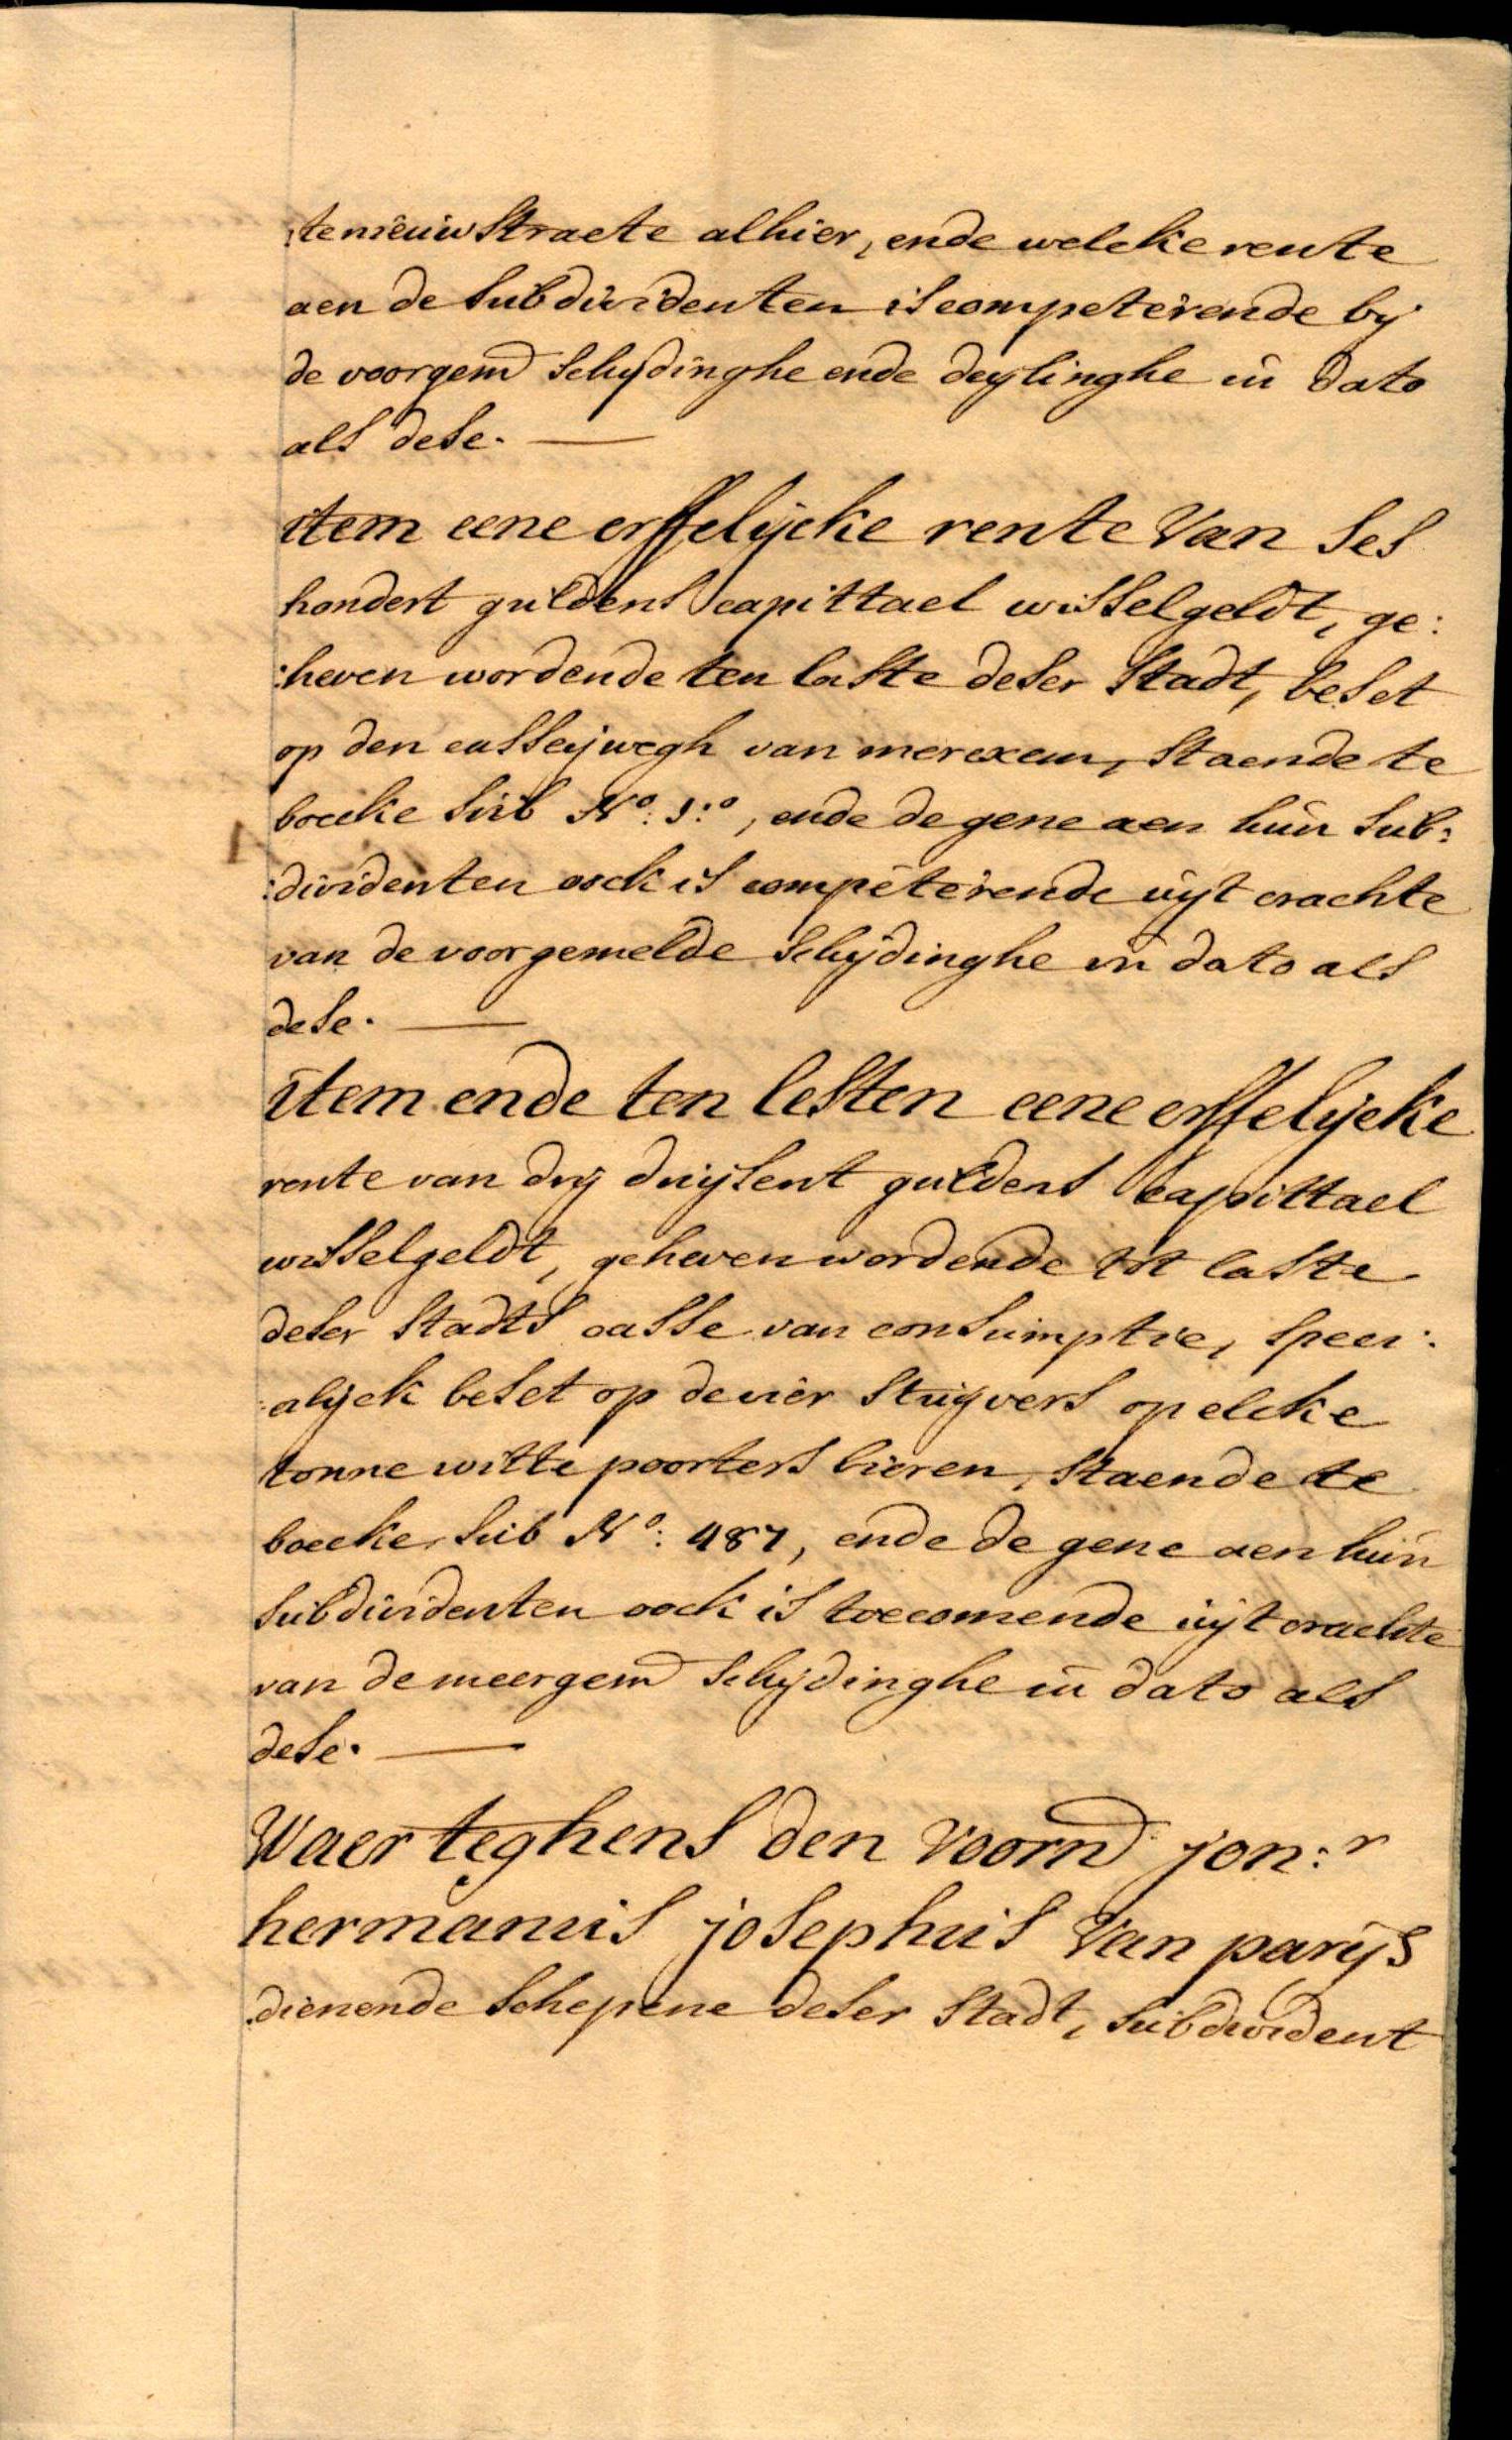 :te nieuwstraete alhier, ende welcke rente
aen de subdividenten is competerende by
de voorgem̅d schydinghe ende deylinghe in dato
als dese. —
item eene erffelijcke rente van ses
hondert guldens capittael wisselgeldt, ge:
:heven wordende ten laste deser stadt, beset
op den casseijwegh van merexem, staende te
boecke sub N.º: 1:º, ende de gene aen hun sub:
:dividenten oock is competerende uijt crachte
van de voorgemelde schijdinghe in dato als
dese. —
item ende ten lesten eene erffelijcke
rente van drij duijsent guldens capittael
wisselgeldt, geheven wordende tot laste
deser stadts casse van consumptie, speci:
:alijck beset op de vier stuijvers op elcke
tonne witte poorters bieren, staende te
boecke sub N.º: 487, ende de gene aen hun
subdividenten oock is toecomende uijt crachte
van de meergem̅d schijdinghe in dato als
dese. —
Waer teghens den voorn̅d jon:r
hermanus josephus van parijs
dienende schepene deser stadt, subdivident